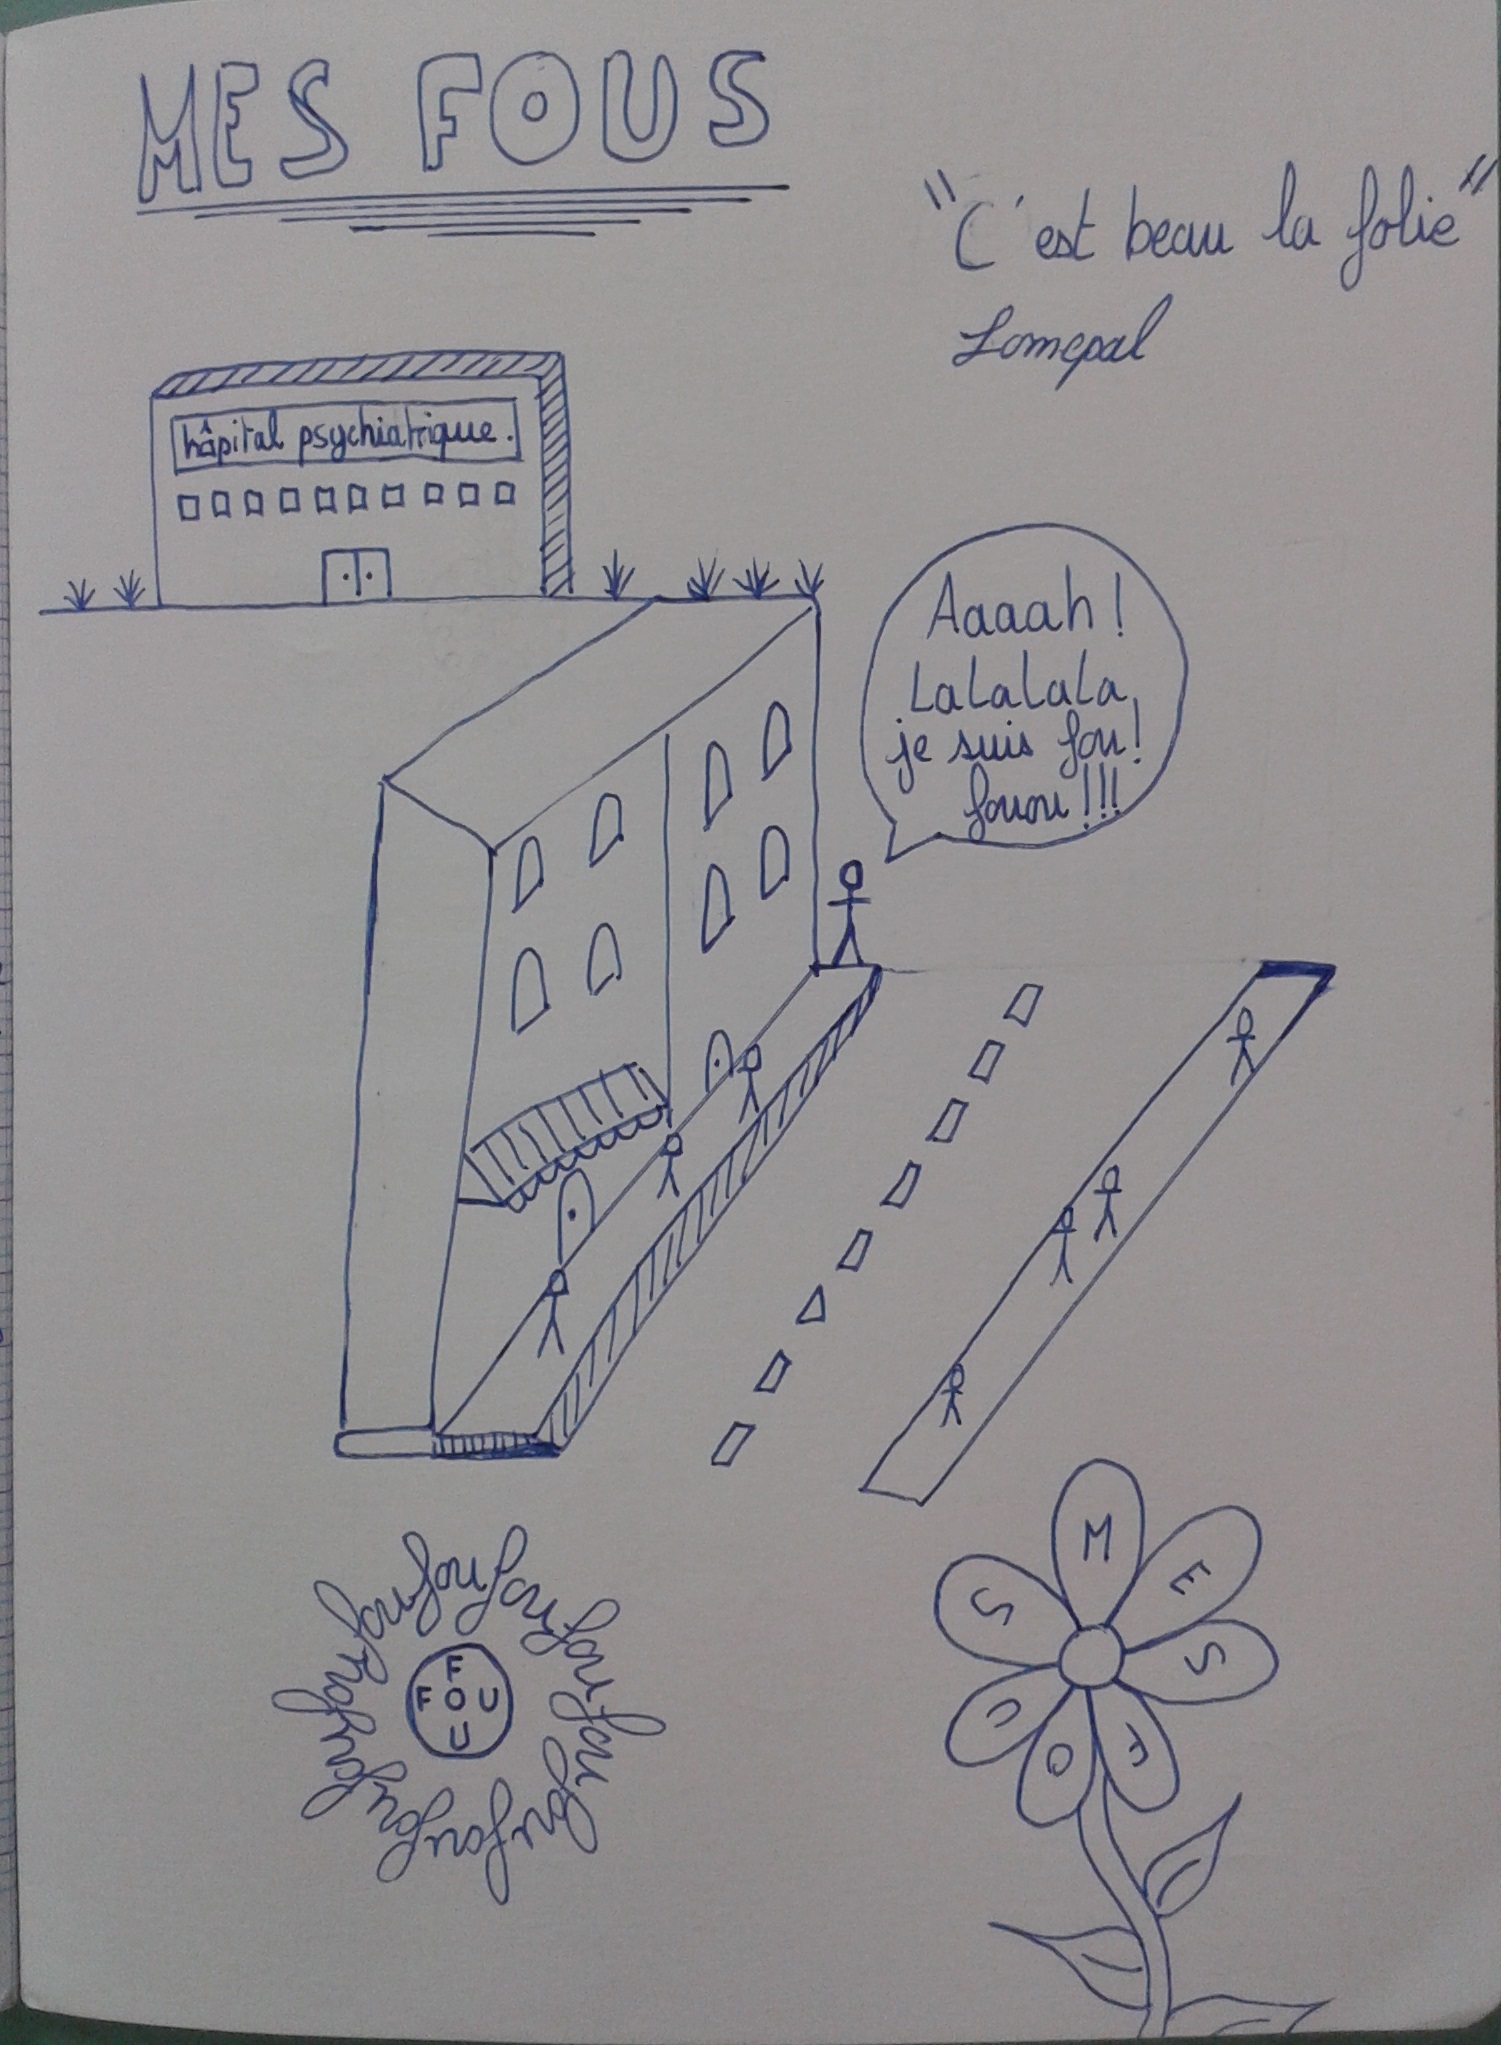 MES FOUS
"C'est beau la folie"
Lomepal
hôpital psychiatrique.
Aaaah !
LaLaLaLa,
je suis fou !
fouou !!!
fou fou fou fou fou fou fou fou fou fou fou
F
FOU
U
M
E
S
F
O
U
S